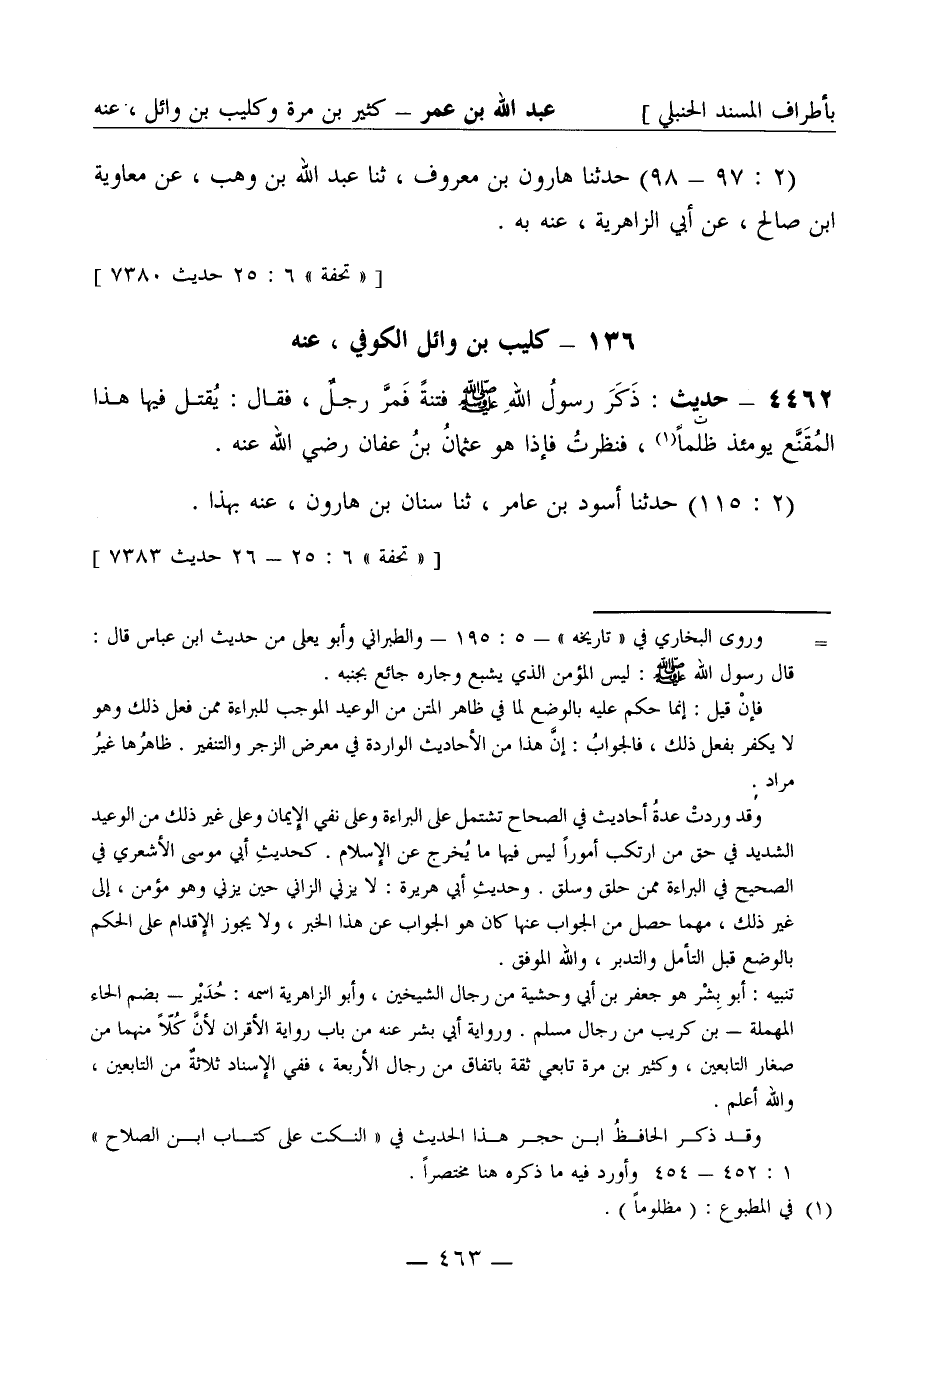 بأطراف المسند الحنبلي ] عبد الله بن عمر – كثير بن مرة وكليب بن وائل ، عنه
(٢ : ٩٧ – ٩٨) حدثنا هارون بن معروف ، ثنا عبد الله بن وهب ، عن معاوية
ابن صالح ، عن أبي الزاهرية ، عنه به .
[ « تحفة » ٦ : ٢٥ حديث ٧٣٨٠ ]
١٣٦ – كليب بن وائل الكوفي ، عنه
٤٤٦٢ – حديث : ذَكَرَ رسولُ اللهِ ﷺ فتنةً فَمرَّ رجلٌ ، فقال : يُقتل فيها هذا
المُقَنَّع يومئذ ظلماً(١) ، فنظرتُ فإذا هو عثمانُ بنُ عفان رضي الله عنه .
(٢ : ١١٥) حدثنا أسود بن عامر ، ثنا سنان بن هارون ، عنه بهذا .
[ « تحفة » ٦ : ٢٥ – ٢٦ حديث ٧٣٨٣ ]
= وروى البخاري في « تاريخه » – ٥ : ١٩٥ – والطبراني وأبو يعلى من حديث ابن عباس قال :
قال رسول الله ﷺ : ليس المؤمن الذي يشبع وجاره جائع بجنبه .
فإنْ قيل : إنما حكم عليه بالوضع لما في ظاهر المتن من الوعيد الموجب للبراءة ممن فعل ذلك وهو
لا يكفر بفعل ذلك ، فالجوابُ : إنَّ هذا من الأحاديث الواردة في معرض الزجر والتنفير . ظاهرُها غيرُ
مراد .
وقد وردتْ عدةُ أحاديث في الصحاح تشتمل على البراءة وعلى نفي الإيمان وعلى غير ذلك من الوعيد
الشديد في حق من ارتكب أموراً ليس فيها ما يُخرج عن الإسلام . كحديثِ أبي موسى الأشعري في
الصحيح في البراءة ممن حلق وسلق . وحديثِ أبي هريرة : لا يزني الزاني حين يزني وهو مؤمن ، إلى
غير ذلك ، مهما حصل من الجواب عنها كان هو الجواب عن هذا الخبر ، ولا يجوز الإقدام على الحكم
بالوضع قبل التأمل والتدبر ، والله الموفق .
تنبيه : أبو بِشْر هو جعفر بن أبي وحشية من رجال الشيخين ، وأبو الزاهرية اسمه : حُدَيْر – بضم الحاء
المهملة – بن كريب من رجال مسلم . ورواية أبي بشر عنه من باب رواية الأقران لأنَّ كُلّاً منهما من
صغار التابعين ، وكثير بن مرة تابعي ثقة باتفاق من رجال الأربعة ، ففي الإسناد ثلاثةٌ من التابعين ،
والله أعلم .
وقد ذكر الحافظُ ابن حجر هذا الحديث في « النكت على كتاب ابن الصلاح »
١ : ٤٥٢ – ٤٥٤ وأورد فيه ما ذكره هنا مختصراً .
(١) في المطبوع : ( مظلوماً ) .
– ٤٦٣ –